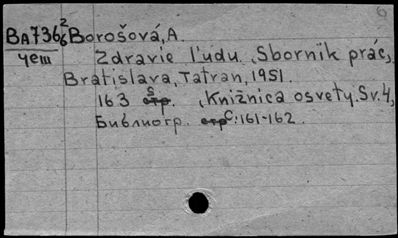 Ба736 2/6 Borošová, A.
чеш
Zdravie ľudu. (Sborník prác),
Bratislava, Tatran, 1951.
163 s. (Knižnica osvety. Sv. 4)
Библиогр. с: 161-162.
6